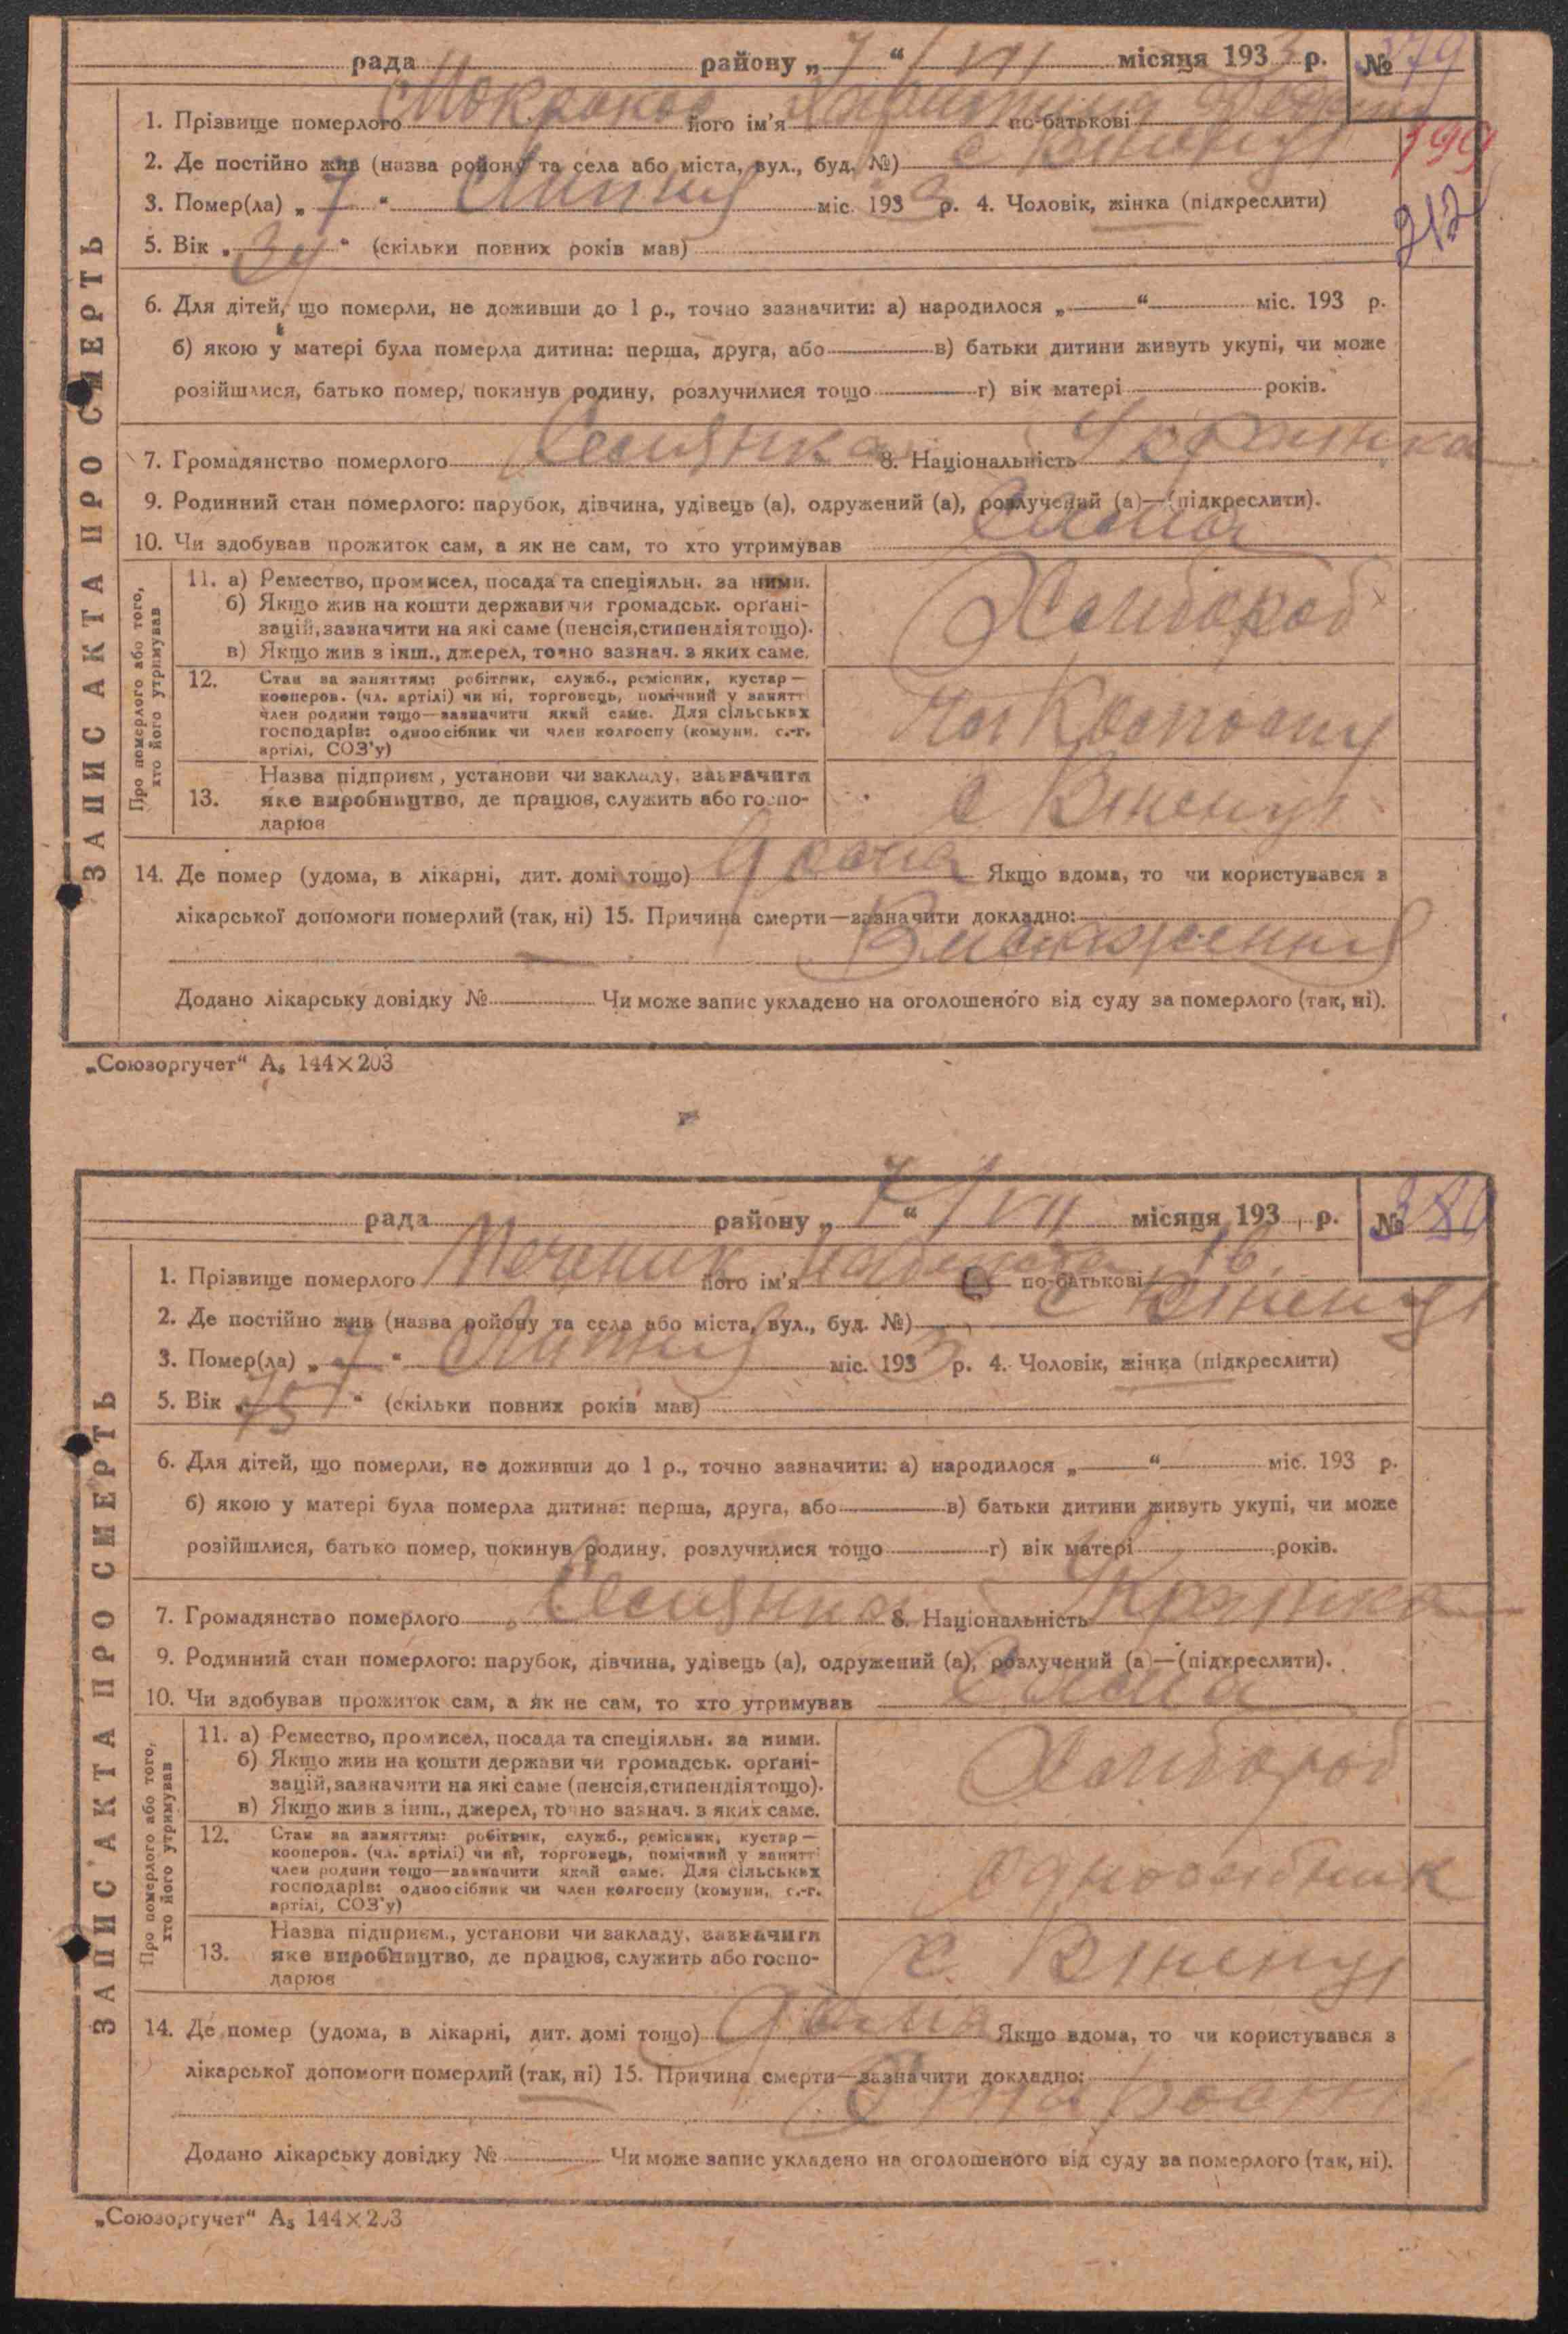 рада району „ 7 “ VII місяця 193 3 р. № 379
1. Прізвище померлого його ім'я по-батькові
2. Де постійно жив (назва району та села або міста, вул., буд. №) с
399
3. Помер(ла) „ 7 “ Липня міс. 193 3 р. 4. Чоловік, жінка (підкреслити)
5. Вік „ 34 “ (скільки повних років мав)
ЗАПИС АКТА ПРО СМЕРТЬ
6. Для дітей, що померли, не доживши до 1 р., точно зазначити: а) народилося „ “ міс. 193 р.
б) якою у матері була померла дитина: перша, друга, або в) батьки дитини живуть укупі, чи може
розійшлися, батько помер, покинув родину, розлучилися тощо г) вік матері років.
7. Громадянство померлого Селянка 8. Національність Українка
9. Родинний стан померлого: парубок, дівчина, удівець (а), одружений (а), розлучений (а)—(підкреслити).
10. Чи здобував прожиток сам, а як не сам, то хто утримував Сама
Про померлого або того, хто його утримував
11. а) Ремество, промисел, посада та спеціяльн. за ними.
б) Якщо жив на кошти держави чи громадськ. органі-
зацій, зазначити на які саме (пенсія, стипендія тощо).
в) Якщо жив з інш., джерел, точно зазнач. з яких саме.
Хлібороб
12. Стан за заняттям: робітник, служб., ремісник, кустар—
кооперов. (чл. артілі) чи ні, торговець, помічний у занятт
член родини тощо—зазначити який саме. Для сільських
господарів: одноосібник чи член колгоспу (комуни, с.-г.
артілі, СОЗ'у)
Чл Колгоспу
13. Назва підприєм., установи чи закладу, зазначити
яке виробництво, де працюв, служить або госпо-
дарюв
14. Де помер (удома, в лікарні, дит. домі тощо) Удома Якщо вдома, то чи користувався з
лікарської допомоги померлий (так, ні) 15. Причина смерти—зазначити докладно:
Виснаження
Додано лікарську довідку № Чи може запис укладено на оголошеного від суду за померлого (так, ні).
„Союзоргучет“ А₅ 144×203
рада району „ 7 “ VII місяця 193 р. № 380
1. Прізвище померлого його ім'я по-батькові
2. Де постійно жив (назва району та села або міста, вул., буд. №) с
3. Помер(ла) „ 7 “ Липня міс. 193 3 р. 4. Чоловік, жінка (підкреслити)
5. Вік „ 75 “ (скільки повних років мав)
ЗАПИС АКТА ПРО СМЕРТЬ
6. Для дітей, що померли, не доживши до 1 р., точно зазначити: а) народилося „ “ міс. 193 р.
б) якою у матері була померла дитина: перша, друга, або в) батьки дитини живуть укупі, чи може
розійшлися, батько помер, покинув родину, розлучилися тощо г) вік матері років.
7. Громадянство померлого Селянка 8. Національність Українка
9. Родинний стан померлого: парубок, дівчина, удівець (а), одружений (а), розлучений (а)—(підкреслити).
10. Чи здобував прожиток сам, а як не сам, то хто утримував Сама
Про померлого або того, хто його утримував
11. а) Ремество, промисел, посада та спеціяльн. за ними.
б) Якщо жив на кошти держави чи громадськ. органі-
зацій, зазначити на які саме (пенсія, стипендія тощо).
в) Якщо жив з інш., джерел, точно зазнач. з яких саме.
Хлібороб
12. Стан за заняттям: робітник, служб., ремісник, кустар—
кооперов. (чл. артілі) чи ні, торговець, помічний у занятт
член родини тощо—зазначити який саме. Для сільських
господарів: одноосібник чи член колгоспу (комуни, с.-г.
артілі, СОЗ'у)
Одноосібник
13. Назва підприєм., установи чи закладу, зазначити
яке виробництво, де працюв, служить або госпо-
дарюв
14. Де помер (удома, в лікарні, дит. домі тощо) Удома Якщо вдома, то чи користувався з
лікарської допомоги померлий (так, ні) 15. Причина смерти—зазначити докладно:
Додано лікарську довідку № Чи може запис укладено на оголошеного від суду за померлого (так, ні).
„Союзоргучет“ А₅ 144×203